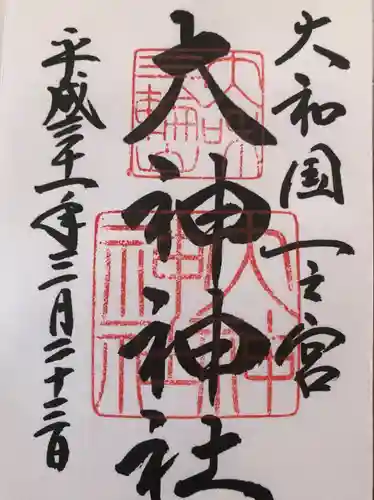 大和国一之宮
大神神社
平成三十一年三月二十三日